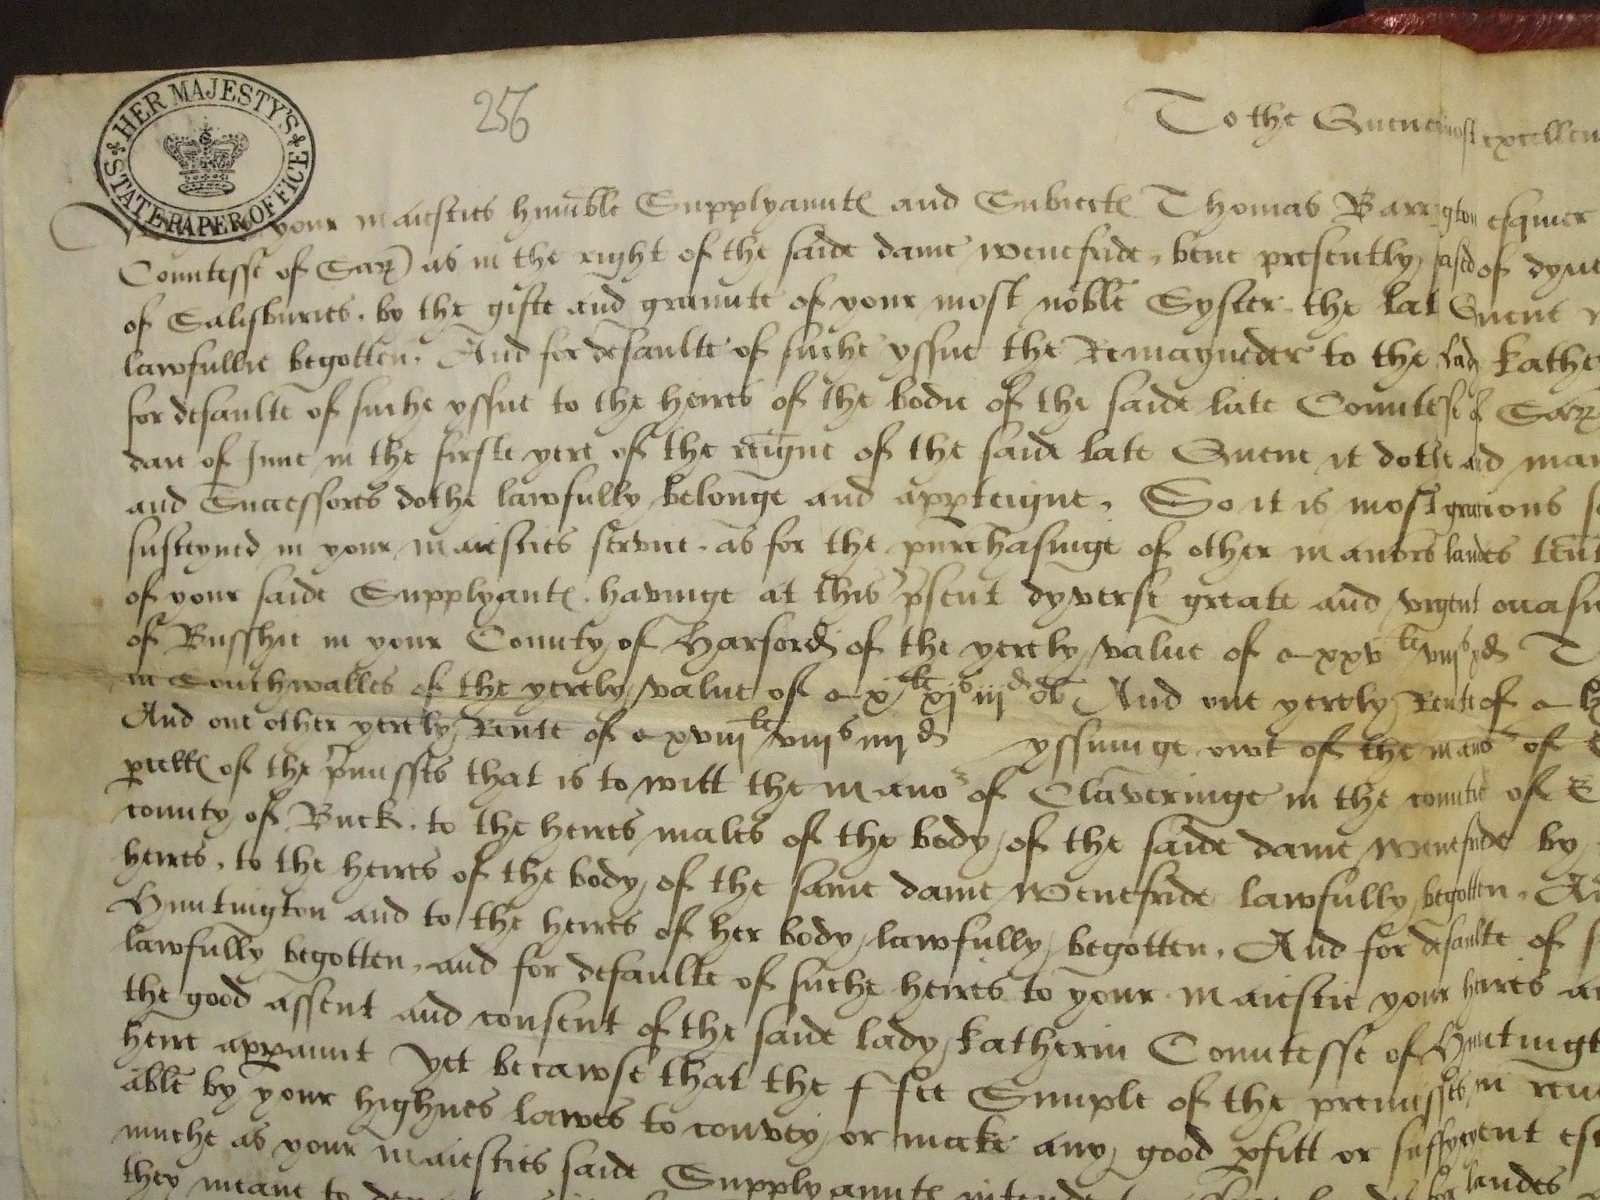 HER MAJESTY'S STATE PAPER OFFICE
256
To the Quenes most excellen
your maiesties humble Supplyauntes and Subiectes Thomas Barrington esquier
Countesse of Sar) as in the right of the saide dame wenefride, bene presently seased of dyue
of Salisburies, by the gifte and graunte of your most noble Syster the late Quene
lawfullie begotten. And for defaulte of suche yssue the Remaynder to the lady Kathe
for defaulte of suche yssue to the heires of the bodie of the saide late Countesse of Sar
daie of June in the firste yere of the reigne of the saide late Quene it dothe and maie
and Successores dothe lawfully belonge and apperteigne. So it is most gracious
susteyned in your maiesties servue as for the purchasinge of other manors landes tent
of your saide Supplyantes havinge at this psent dyverse greate and vrgent occasi
of Busshie in your County of Harford of the yerely value of xxv li viijs xd
in Southwalles of the yerely value of x li xijs iijd ob And one yerely Rente of
And one other yerely Rente of xviij li viijs iiijd yssuinge owt of the mano of
pcell of the pmisses that is to witt the mano of Claveringe in the countie of E
county of Buck. to the heires males of the body of the saide dame wenefride by
heires, to the heires of the body of the same dame wenefride lawfully begotten. An
Huntington and to the heires of her body lawfully begotten. And for defaulte of s
lawfully begotten, and for defaulte of suche heires to your maiestie your heires an
the good assent and consent of the saide lady Katherin Countesse of Huntingt
heire apparaunt yet becawse that the ffee Simple of the premisses in reue
able by your highnes lawes to convey or make any good pfitt or suffycyent est
muche as your maiesties saide Supplyauntes intende
they meane to landes